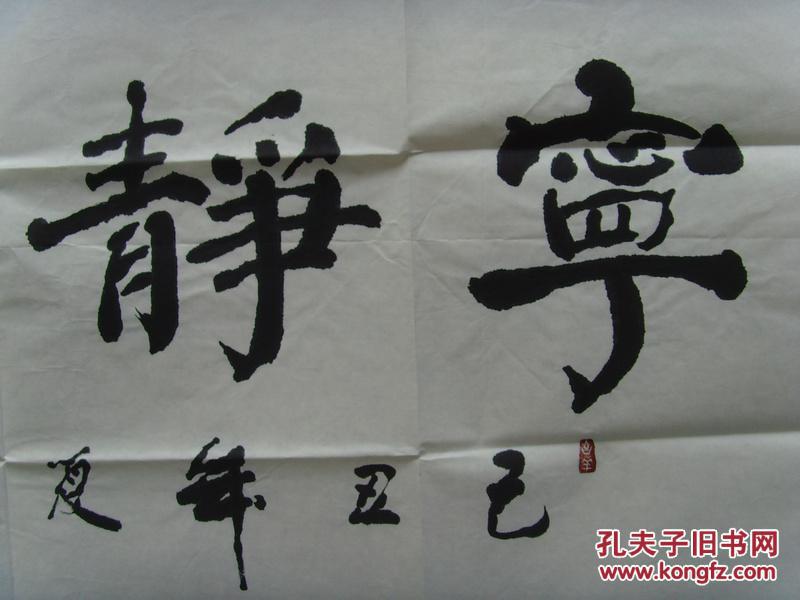 寧靜
己丑年夏
孔夫子旧书网
www.kongfz.com